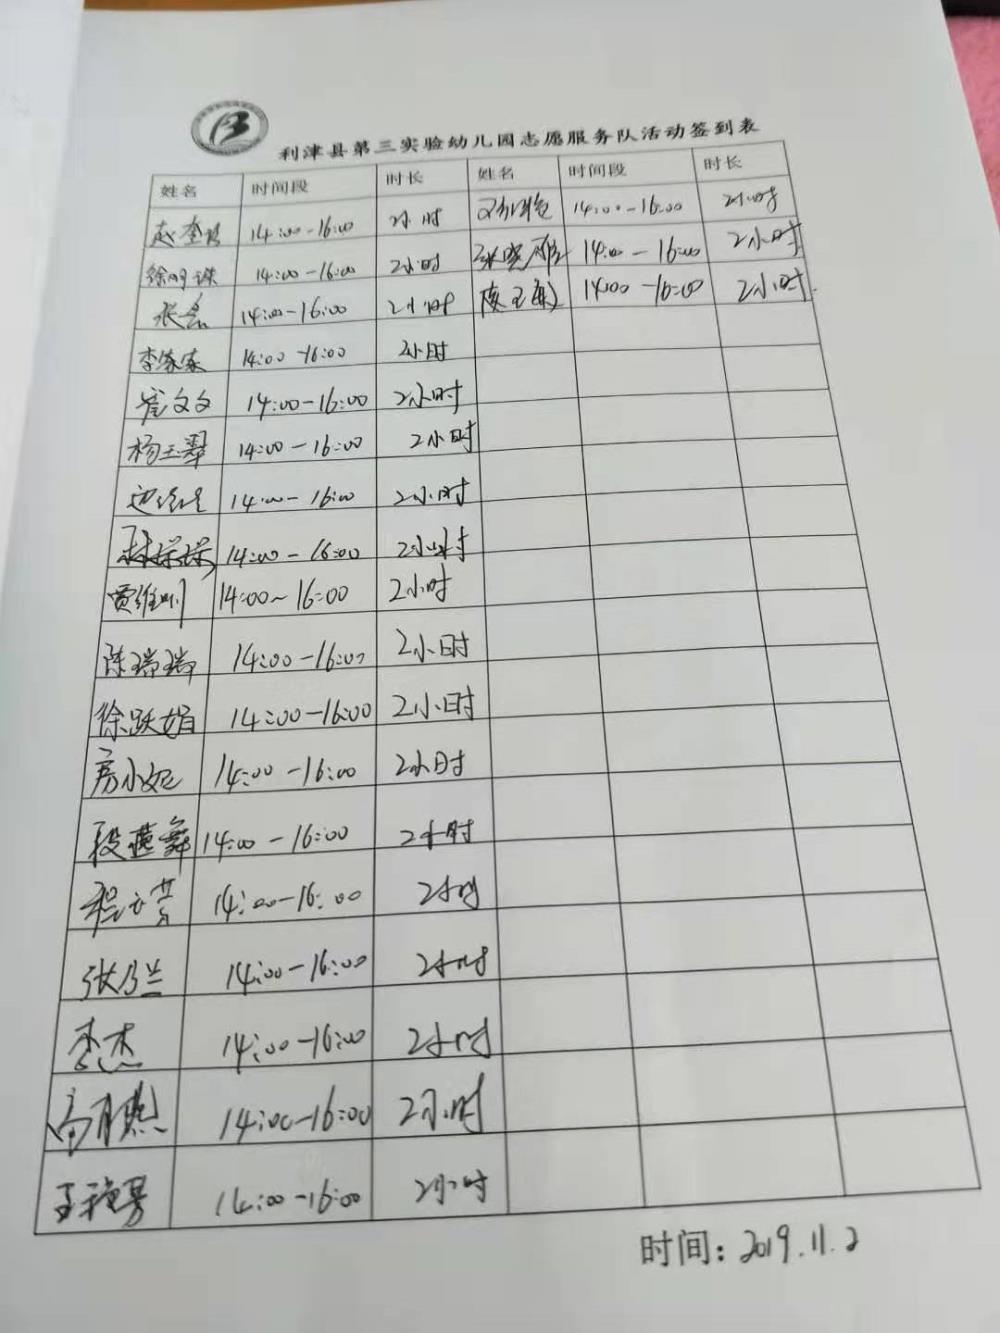 利津县第三实验幼儿园志愿服务队活动签到表
姓名 时间段 时长 姓名 时间段 时长
14:00-16:00 2小时 14:00-16:00 2小时
徐明珠 14:00-16:00 2小时 14:00-16:00 2小时
张 14:00-16:00 2小时 14:00-16:00 2小时
李家家 14:00-16:00 2小时
崔文文 14:00-16:00 2小时
杨玉翠 14:00-16:00 2小时
14:00-16:00 2小时
林 14:00-16:00 2小时
贾维 14:00~16:00 2小时
陈瑞瑞 14:00-16:00 2小时
徐跃娟 14:00-16:00 2小时
房小妮 14:00-16:00 2小时
段燕舞 14:00-16:00 2小时
程 14:00-16:00 2小时
张乃兰 14:00-16:00 2小时
李杰 14:00-16:00 2小时
高月燕 14:00-16:00 2小时
王 14:00-16:00 2小时
时间：2019.11.2